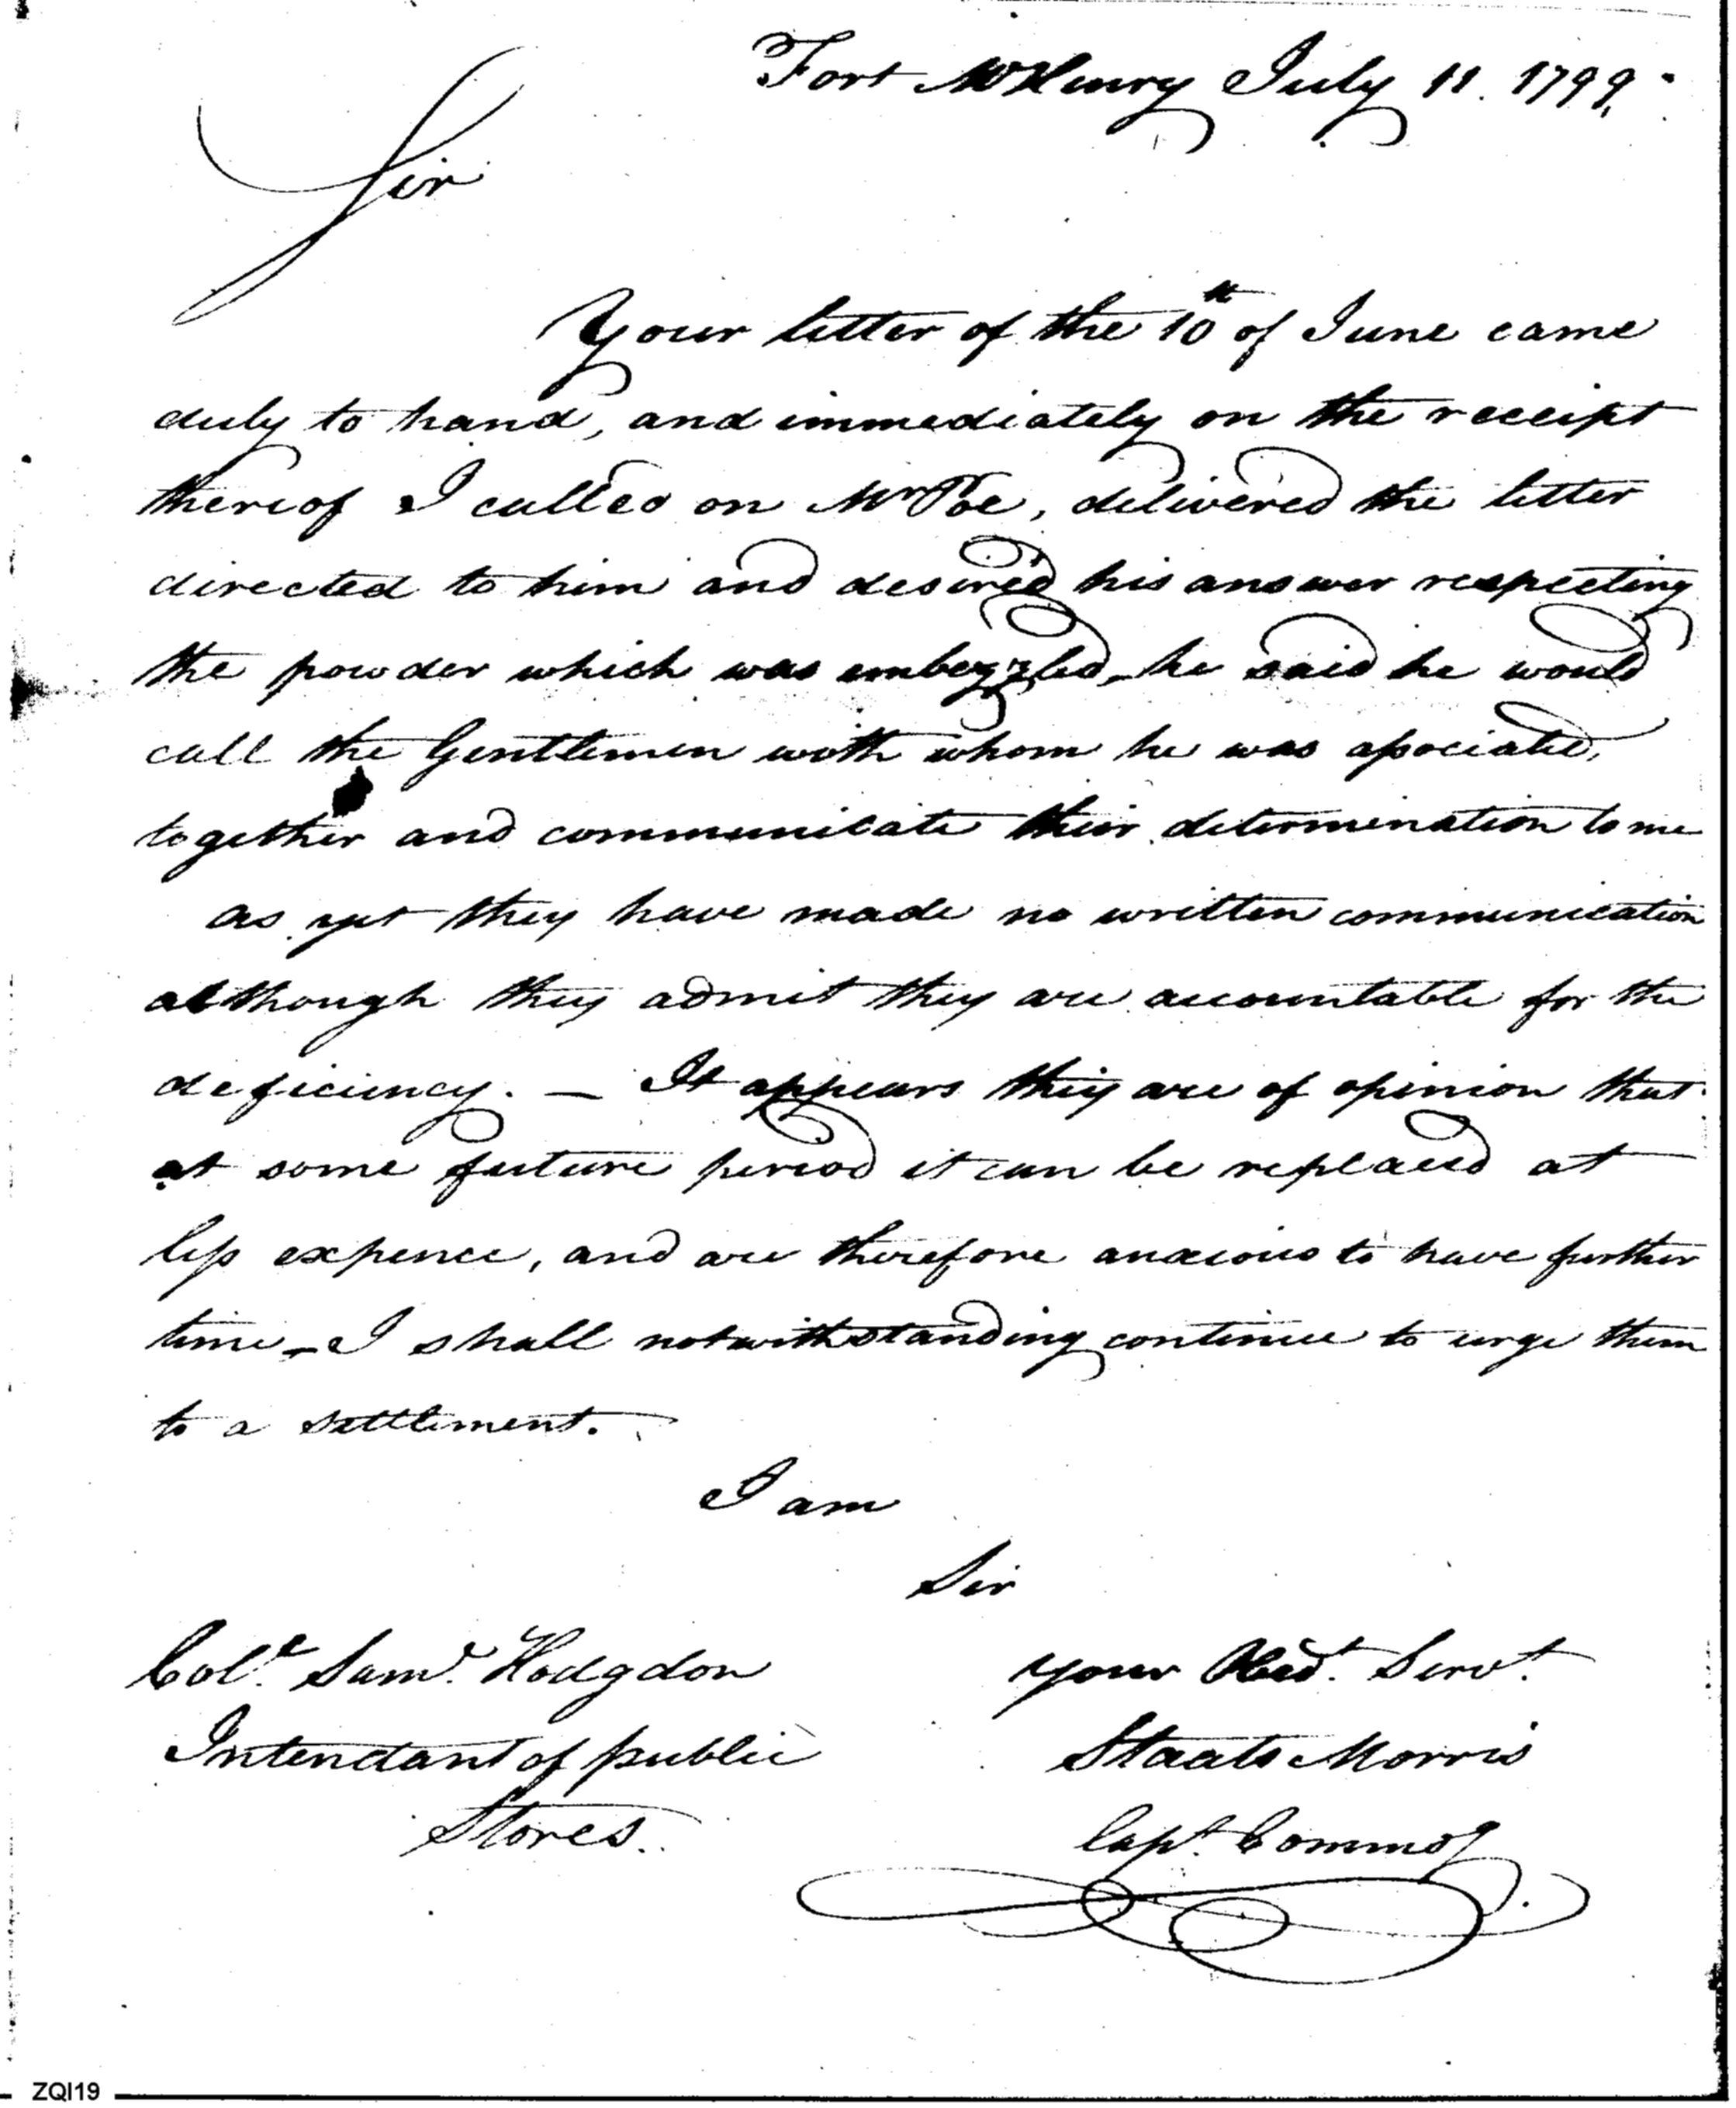 Fort McHenry July 11. 1799.
Sir
Your letter of the 10th of June came
duly to hand, and immediately on the receipt
thereof I called on Mr Poe, delivered the letter
directed to him and desired his answer respecting
the powder which was embezzled, he said he would
call the Gentlemen with whom he was associated,
together and communicate their determination to me
as yet they have made no written communication
although they admit they are accountable for the
deficiency. — It appears they are of opinion that
at some future period it can be replaced at
less expence, and are therefore anxious to have further
time – I shall notwithstanding continue to urge them
to a settlement.
I am
Sir
Colo. Saml. Hodgdon your Obedt. Servt.
Intendant of public Staats Morris
Stores. Capt. Commdg
ZQI19